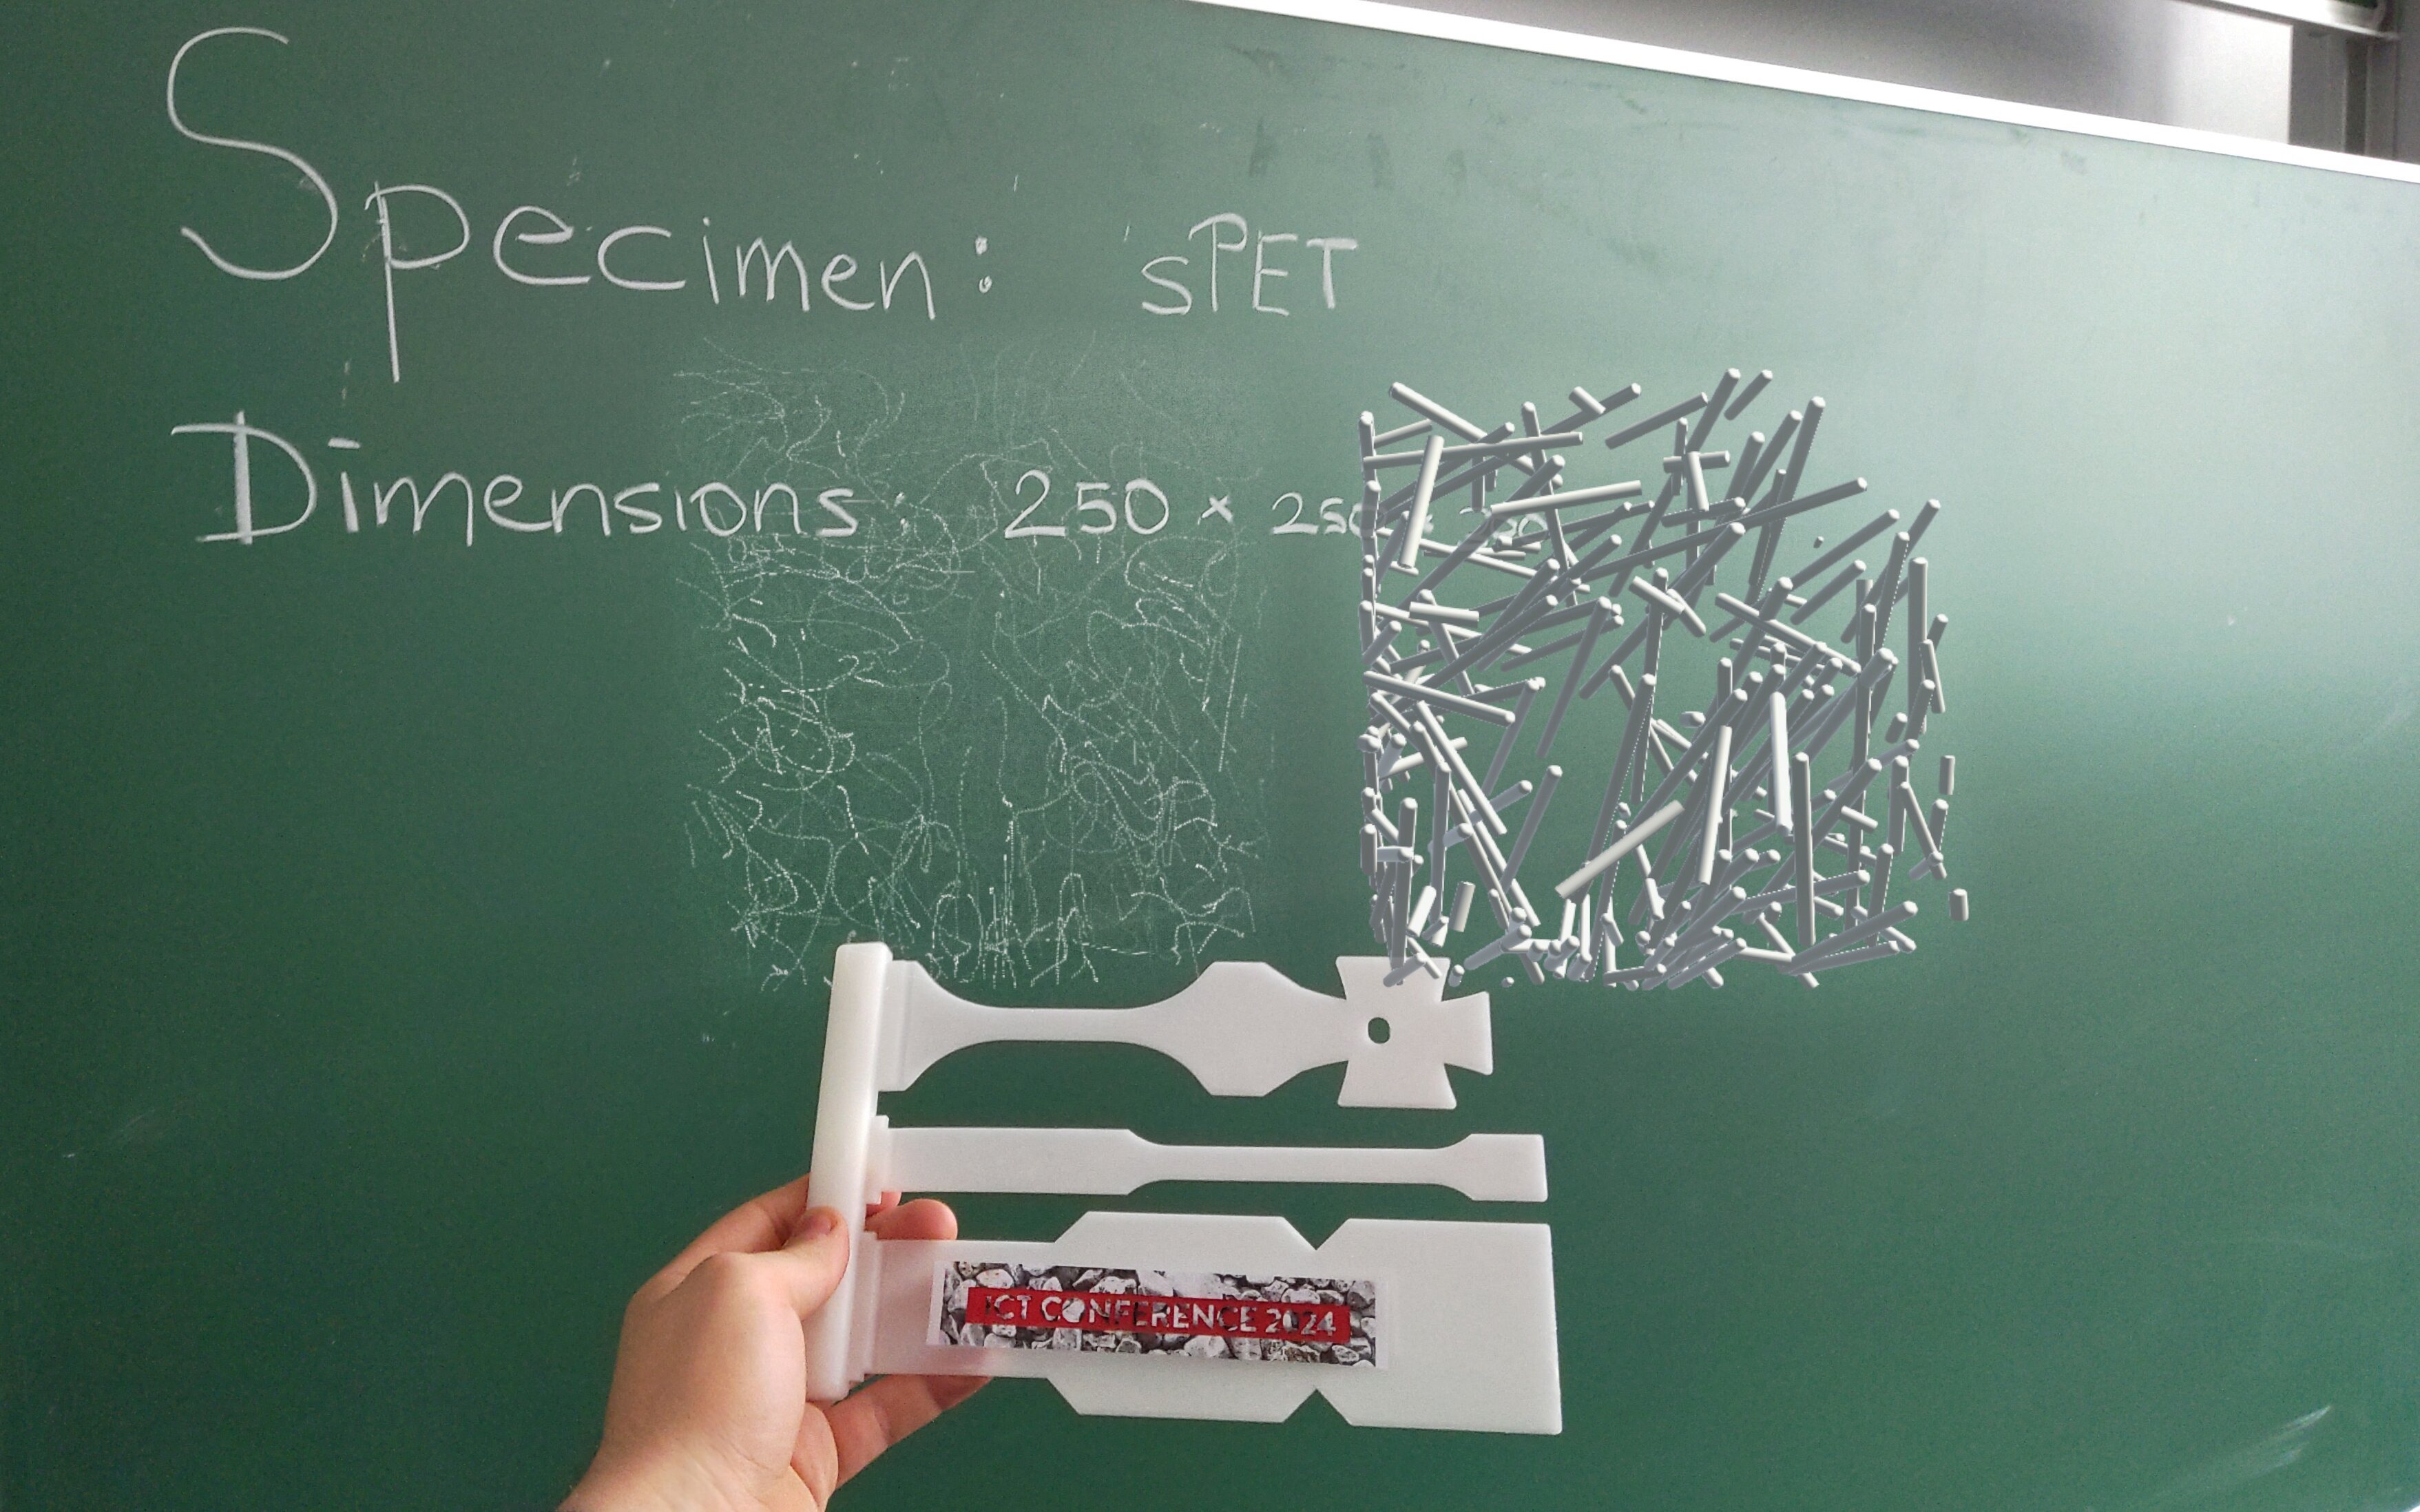 Specimen: sPET
Dimensions: 250 × 250
ICT CONFERENCE 2024